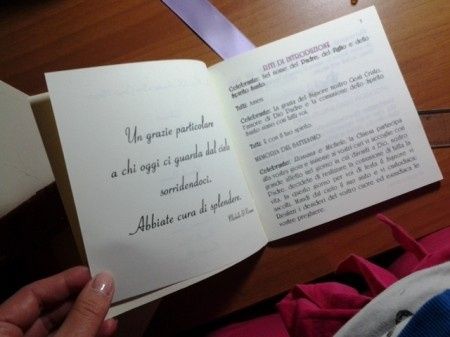 Un grazie particolare
a chi oggi ci guarda dal cielo
sorridendoci.
Abbiate cura di splendere.
RITI DI INTRODUZIONE
Celebrante: Nel nome del Padre, del Figlio e dello
Spirito Santo.
Tutti: Amen.
Celebrante: La grazia del Signore nostro Gesù Cristo,
l'amore di Dio Padre e la comunione dello Spirito
Santo siano con tutti voi.
Tutti: E con il tuo spirito.
MEMORIA DEL BATTESIMO
Celebrante: e Michele, la Chiesa partecipa
alla vostra gioia e insieme ai vostri cari vi accoglie con
grande affetto nel giorno in cui davanti a Dio, nostro
Padre, decidete di realizzare la comunione di tutta la
vita. In questo giorno per voi di festa il Signore vi
ascolti. Mandi dal cielo il suo aiuto e vi custodisca.
Realizzi i desideri del vostro cuore ed esaudisca le
vostre preghiere.